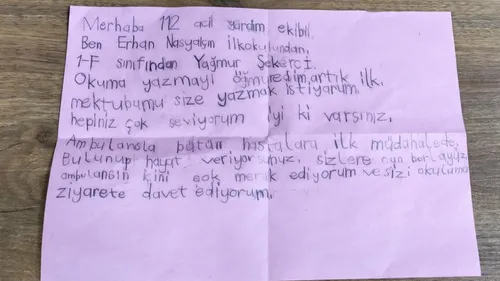 Merhaba 112 acil yardım ekibi.
Ben Erhan Nasyalçın ilkokulundan,
1-F sınıfından Yağmur Şekerci.
Okuma yazmayı öğrnedim, artık ilk
mektubumu size yazmak istiyorum
hepiniz çok seviyorum iyi ki varsınız,
Ambulansla bütün hastalara ilk müdahalede,
Bulunup hayat veriyorsunuz, sizlere
ambulansın kini çok merak ediyorum ve sizi okuluma
ziyarete davet ediyorum,